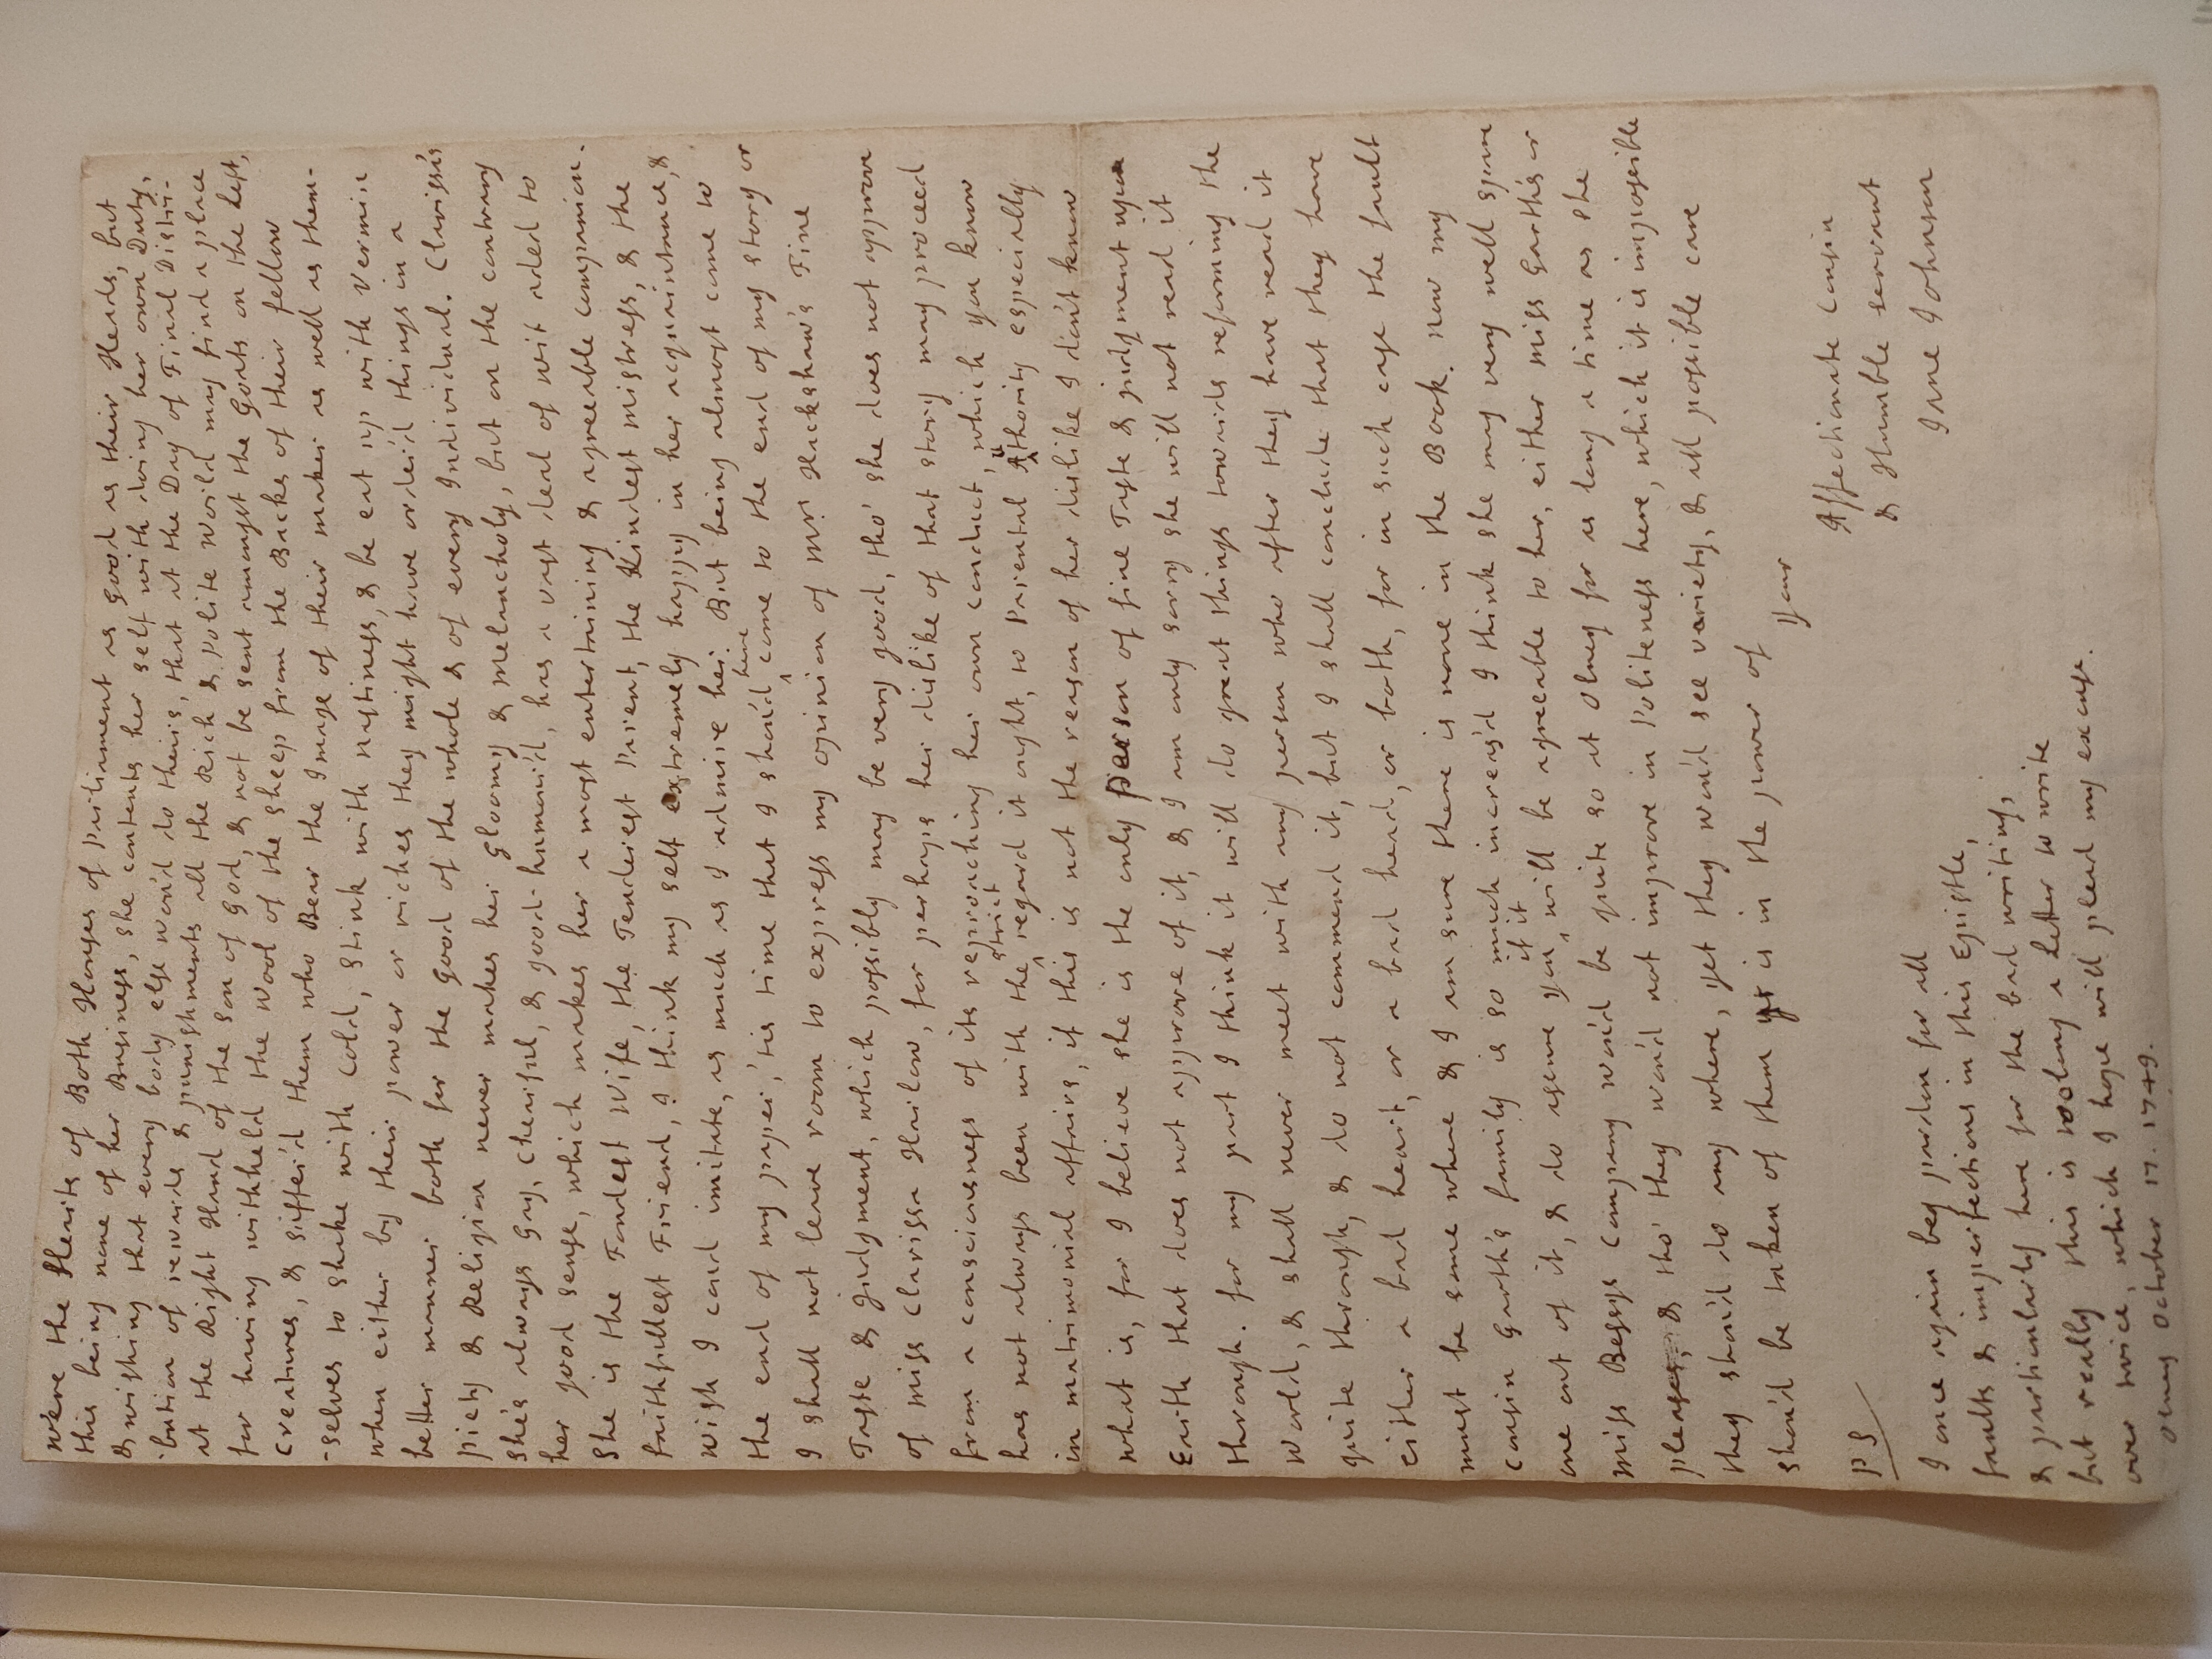 were the Hearts of Both Houses of Parliament as good as their Heads, but
this being none of her Business, she contents her self with doing her own Duty,
& wishing that every body else wou'd do theirs, that at the Day of Final Distri-
-bution of rewards & punishments all the Rich & Polite World may find a place
at the Right Hand of the son of God, & not be sent amongst the Goats on the Left,
for having withheld the Wool of the sheep from the Backs of their fellow
Creatures, & suffer'd them who Bear the Image of their maker as well as them-
-selves to shake with Cold, stink with nastiness, & be eat up with Vermin
when either by their power or riches they might have order'd things in a
better manner both for the Good of the whole & of every Individual. Clarissa's
piety & Religion never makes her Gloomy & melancholy, but on the contrary
she's always Gay, Chearful, & good-humour'd, has a vast deal of wit aded to
her good sense, which makes her a most entertaining & agreeable companion.
She is the Fondest Wife, the Tenderest Parent, the Kindest mistress, & the
faithfullest Friend, I think my self extremely happy in her acquaintance, &
wish I coud imitate, as much as I admire her. But being almost come to
the end of my paper, 'tis time that I shou'd ^here come to the end of my story or
I shall not leave room to express my opinion of Mrs Hackshaw's Fine
Taste & judgment, which possibly may be very good, tho' she does not approve
of miss Clarissa Harlow, for perhaps her dislike of that story may proceed
from a consciousness of its reproaching her own conduct, which you know
has not always been with the ^strict regard it ought, to Parental Authority especially
in matrimonial affairs, if this is not the reason of her dislike I don't know
what is, for I believe she is the only person of fine Taste & judgment upon
Earth that does not approve of it, & I am only sorry she will not read it
through. for my part I think it will do great things towards reforming the
World, & shall never meet with any person who after they have read it
quite through, & do not commend it, but I shall conclude that they have
either a bad heart, or a bad head, or both, for in such case the fault
must be some where & I am sure there is none in the Book. now my
cousin Garth's family is so much increas'd I think she may very well spare
one out of it, & do assure you ^if it will be agreeable to her, either miss Garth's or
miss Bessys Company wou'd be quite so at Olney for as long a time as she
pleases, & tho' they wou'd not improve in Politeness here, which it is impossible
they shou'd do any where, yet they wou'd see variety, & all possible care
shou'd be taken of them yt is in the power of
your
Affectionate Cousin
& Humble servant
Jane Johnson
PS
I once again beg pardon for all
faults & imperfections in this Epistle,
& particularly here for the bad writing,
but really this is too long a Letter to write
over twice, which I hope will plead my excuse.
Olney October 17. 1749.